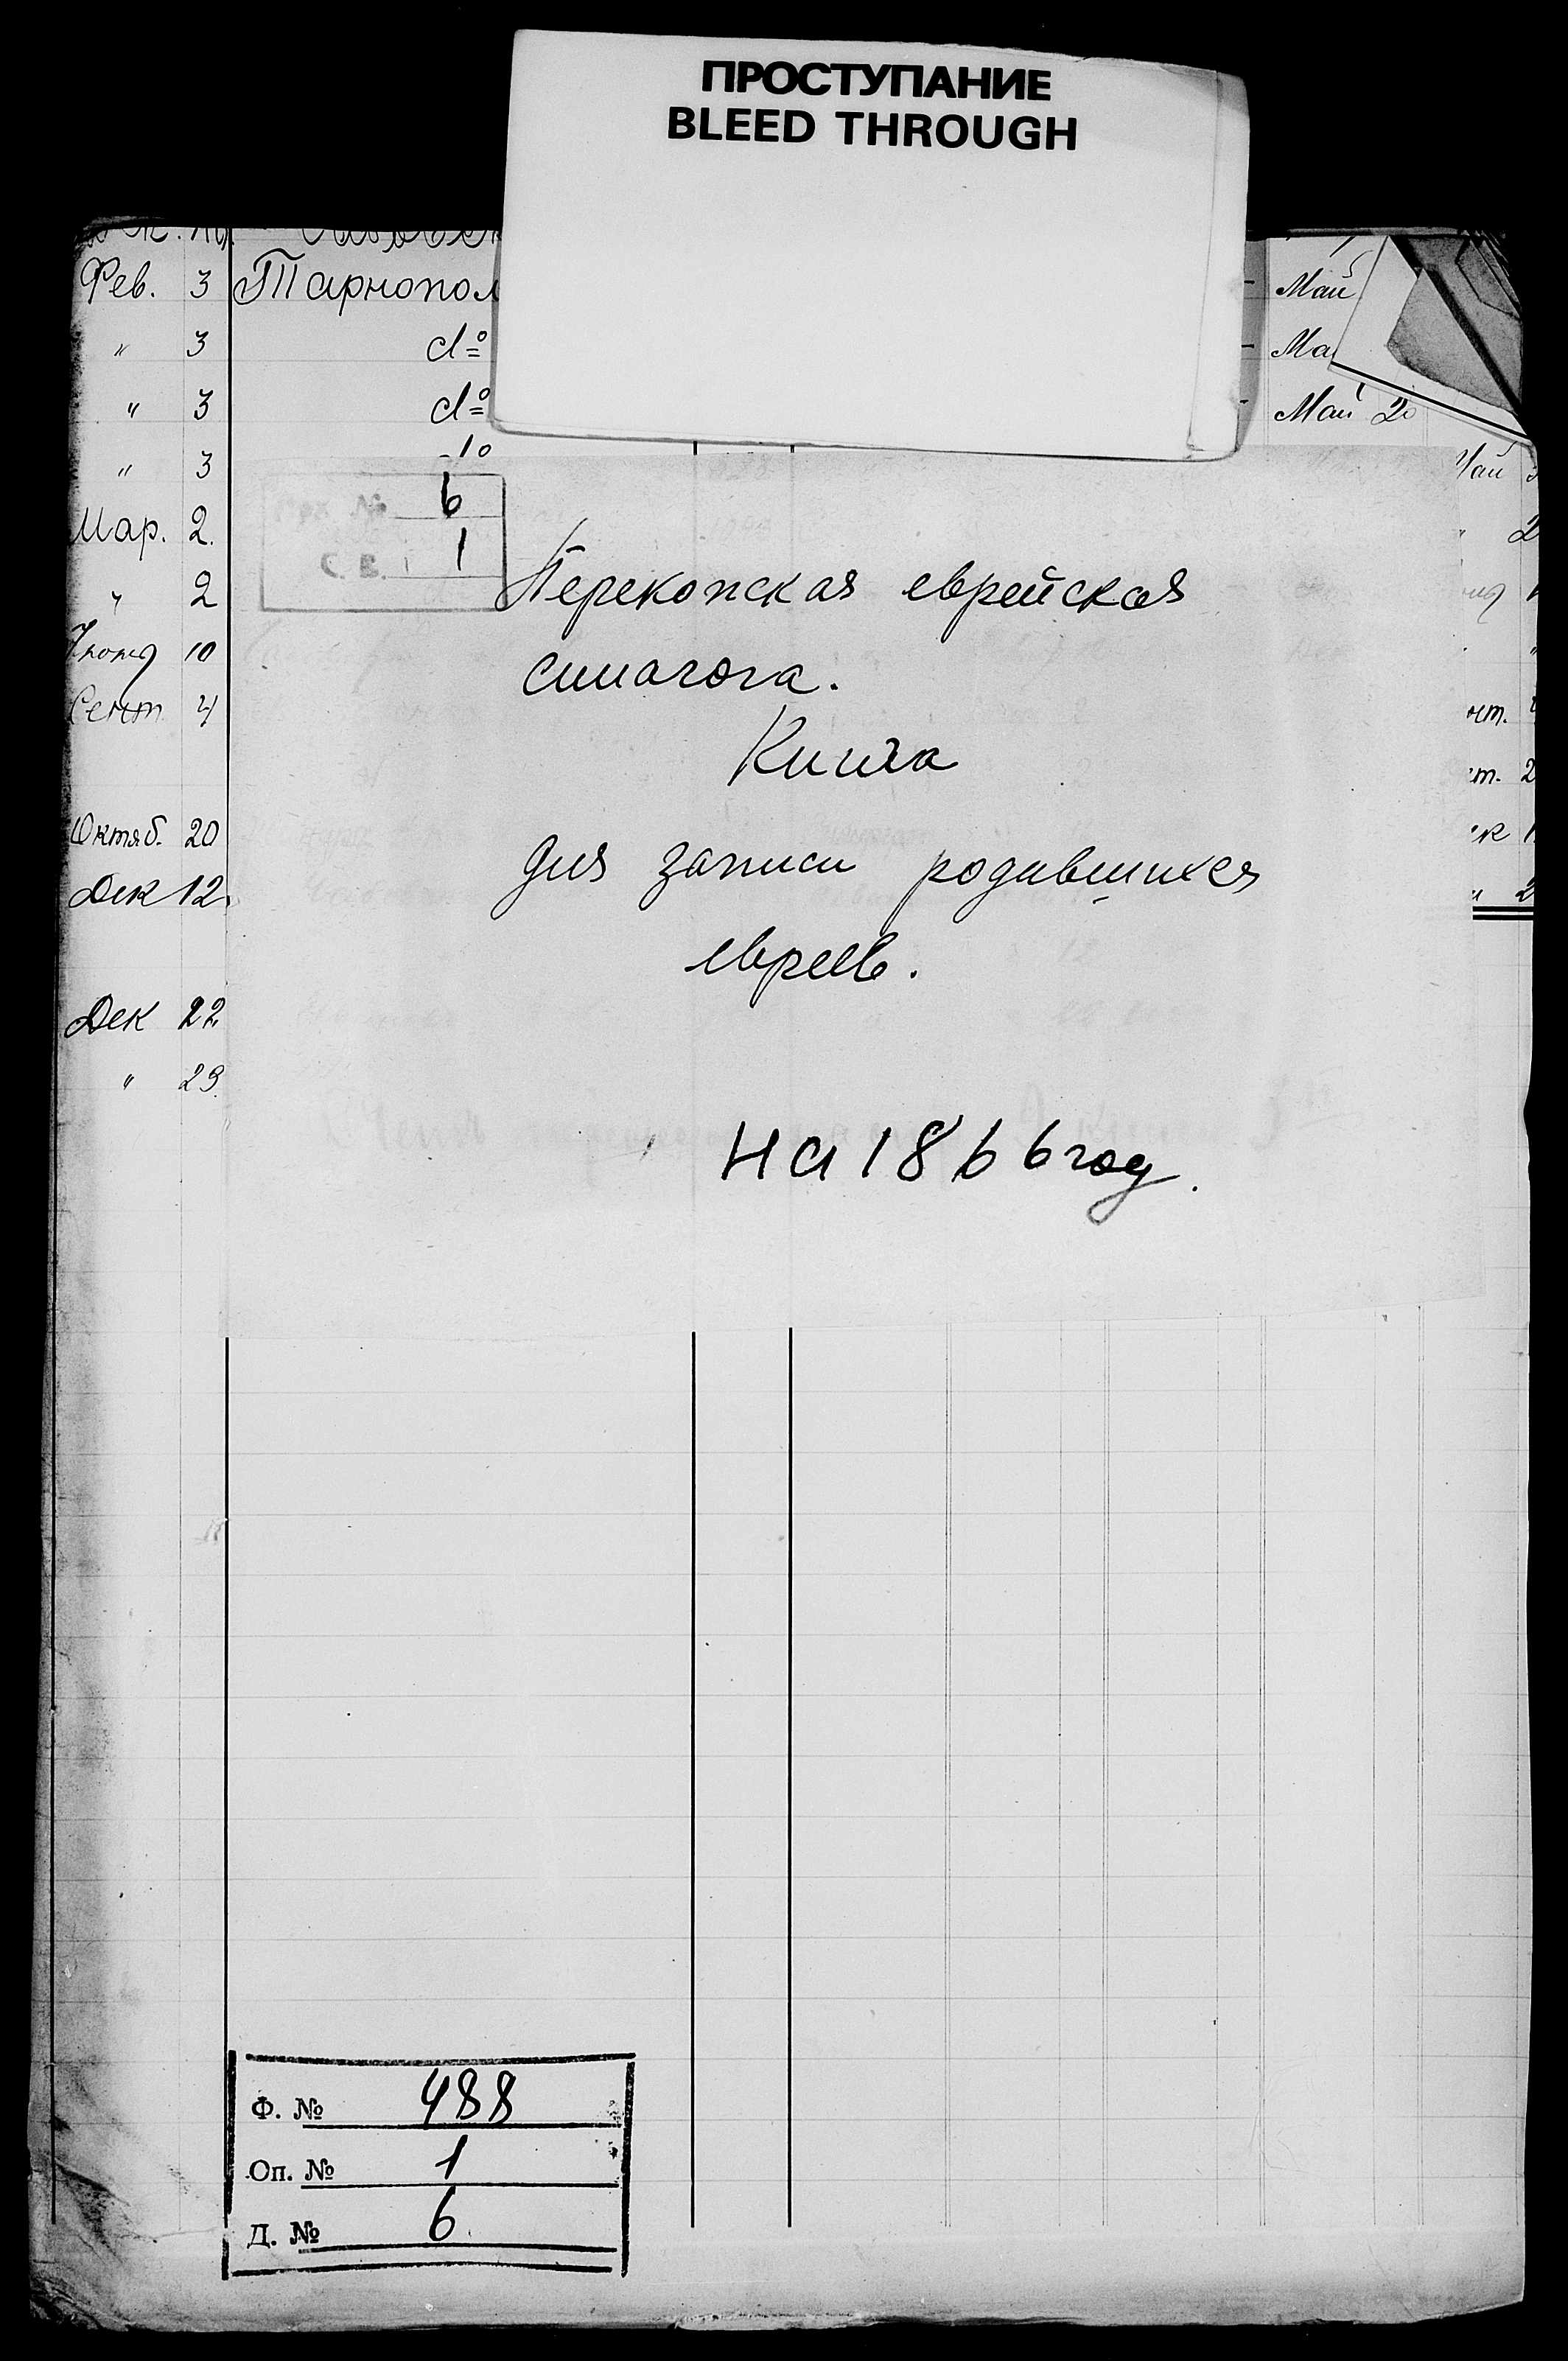 ПРОСТУПАНИЕ
BLEED THROUGH
Фев. 3 Тарнопол Май
" 3 do Ма
" 3 do Май 20
" 3
Мар. 2.
" 2
Июня 10
Сент 4
Октяб. 20
Дек 12.
Дек 22
" 29.
№ 6
С. В. 1
Перекопская еврейская
синагога.
Книга
для записи родившихся
евреев.
на 1866 год.
Ф. № 488
Оп. № 1
Д. № 6